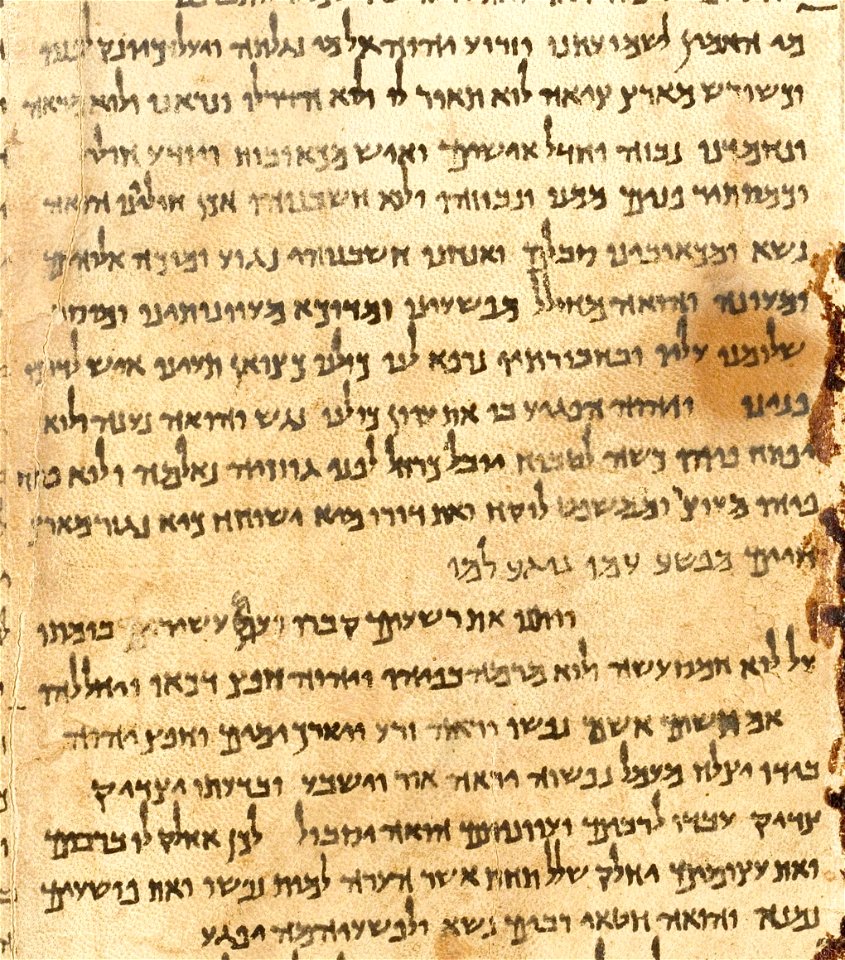 מי האמין לשמועתנו וזרוע יהוה אל מי נגלתה ויעל כיונק לפניו
וכשורש מארץ ציאה לוא תאור לו ולוא הדר לו ונראנו ולוא מראה
ונחמדנו נבזה וחדל אישים ואיש מכאובות ויודע חולי
וכמסתיר פנים ממנו ונבוזהו ולוא חשבנוהו אכן חוליינו הואה
נשא ומכאובינו סבלם ואנחנו חשבנוהו נגוע ומוכה אלוהים
ומעונה והואה מחולל מפשעינו ומדוכא מעוונותינו ומוסר
שלומנו עליו ובחבורתיו נרפא לנו כולנו כצואן תעינו איש לדרכו
פנינו ויהוה הפגיע בו את עוון כולנו נגש והואה נענה ולוא
יפתח פיהו כשה לטבוח יובל כרחל לפני גוזזיה נאלמה ולוא פתח
פיהו מעוצר וממשפט לוקח ואת דורו מיא ישוחח כיא נגזר מארץ
חיים מפשע עמו נוגע למו
ויתנו את רשעים קברו ועם עשירים בומתו
על לוא חמס עשה ולוא מרמה בפיהו ויהוה חפץ דכאו ויחללהו
אם תשים אשם נפשו יראה זרע ויארך ימים וחפץ יהוה
בידו יצלח מעמל נפשוה יראה אור וישבע ובדעתו יצדיק
צדיק עבדו לרבים ועוונותם הואה יסבול לכן אחלק לו ברבים
ואת עצומים יחלק שלל תחת אשר הערה למות נפשו ואת פושעים
נמנה והואה חטאי רבים נשא ולפשעיהמה יפגע